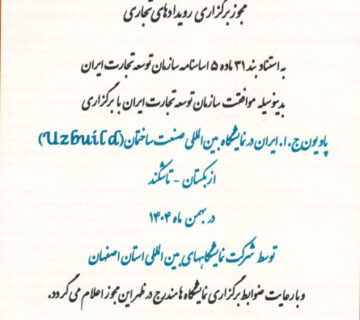 مجوز برگزاری رویدادهای تجاری
به استناد بند ۳۱ ماده ۵ اساسنامه سازمان توسعه تجارت ایران
بدینوسیله موافقت سازمان توسعه تجارت ایران با برگزاری
پاویون ج.ا.ایران در نمایشگاه بین المللی صنعت ساختمان (Uzbuild)
ازبکستان - تاشکند
در بهمن ماه ۱۴۰۴
توسط شرکت نمایشگاههای بین المللی استان اصفهان
و با رعایت ضوابط برگزاری نمایشگاه ها مندرج در ظهر این مجوز اعلام می گردد.